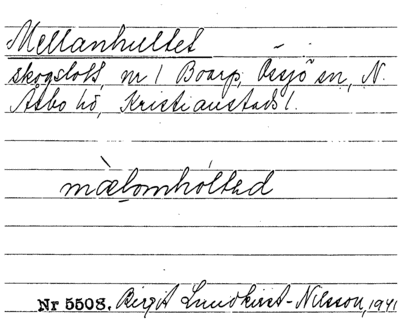 Mellanhultet
skogslott, nr 1 Boarp, Össjö sn, N.
Åsbo hd, Kristianstads l.
mælomhòltəd
Nr 5508. Birgit Lundkvist-Nilsson, 1941